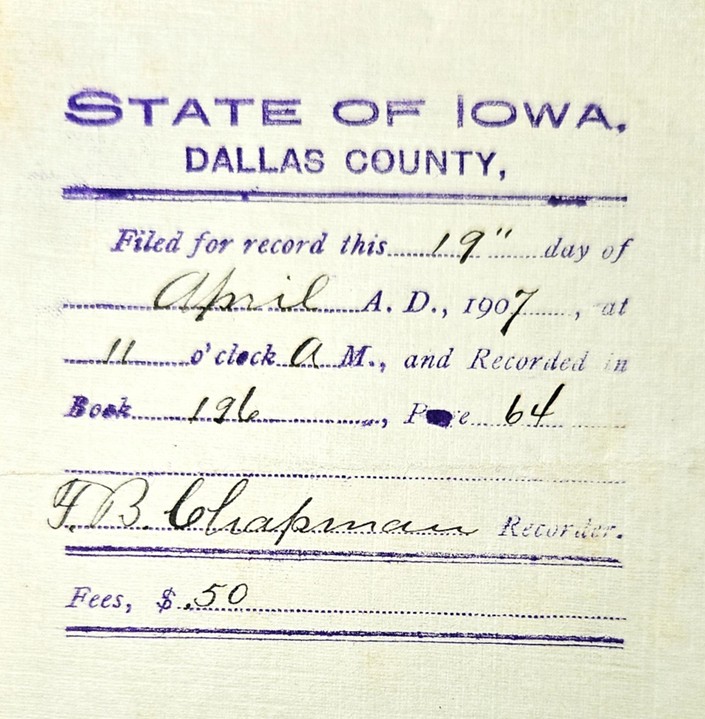 STATE OF IOWA,
DALLAS COUNTY,
Filed for record this 19" day of
April A. D., 1907, at
11 o'clock A M., and Recorded in
Book 196, Page 64
F. B. Chapman Recorder.
Fees, $ .50